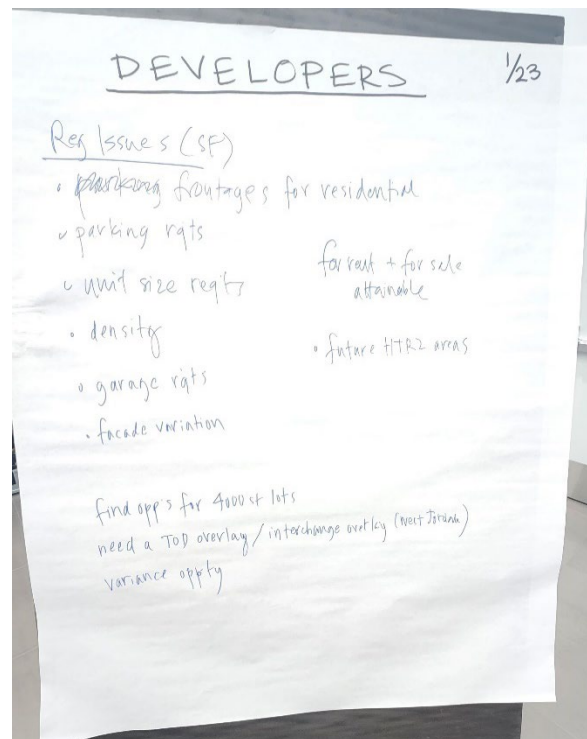 DEVELOPERS
1/23
Reg Issues (SF)
• frontages for residential
• parking rqts
• unit size reqts
• density
• garage rqts
• facade variation
for rent + for sale
attainable
• future HTRZ areas
find opp's for 4000 sf lots
need a TOD overlay / interchange overlay (West Jordan)
variance oppty